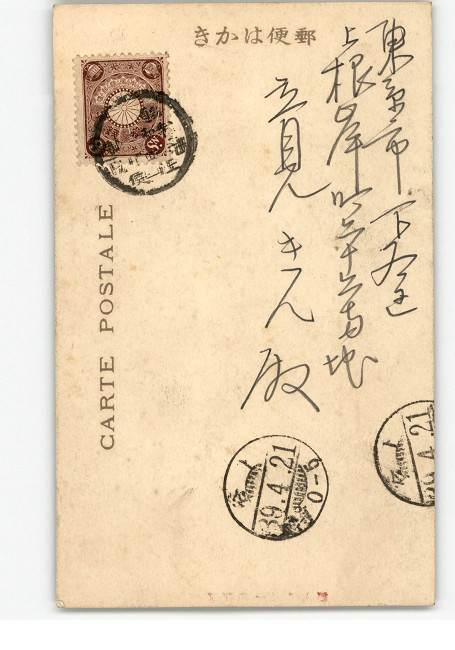 きかは便郵
東京市下谷區
上根岸町八十六番地
立見きん殿
CARTE POSTALE
下谷
39.4.21
0-9
39.4.21